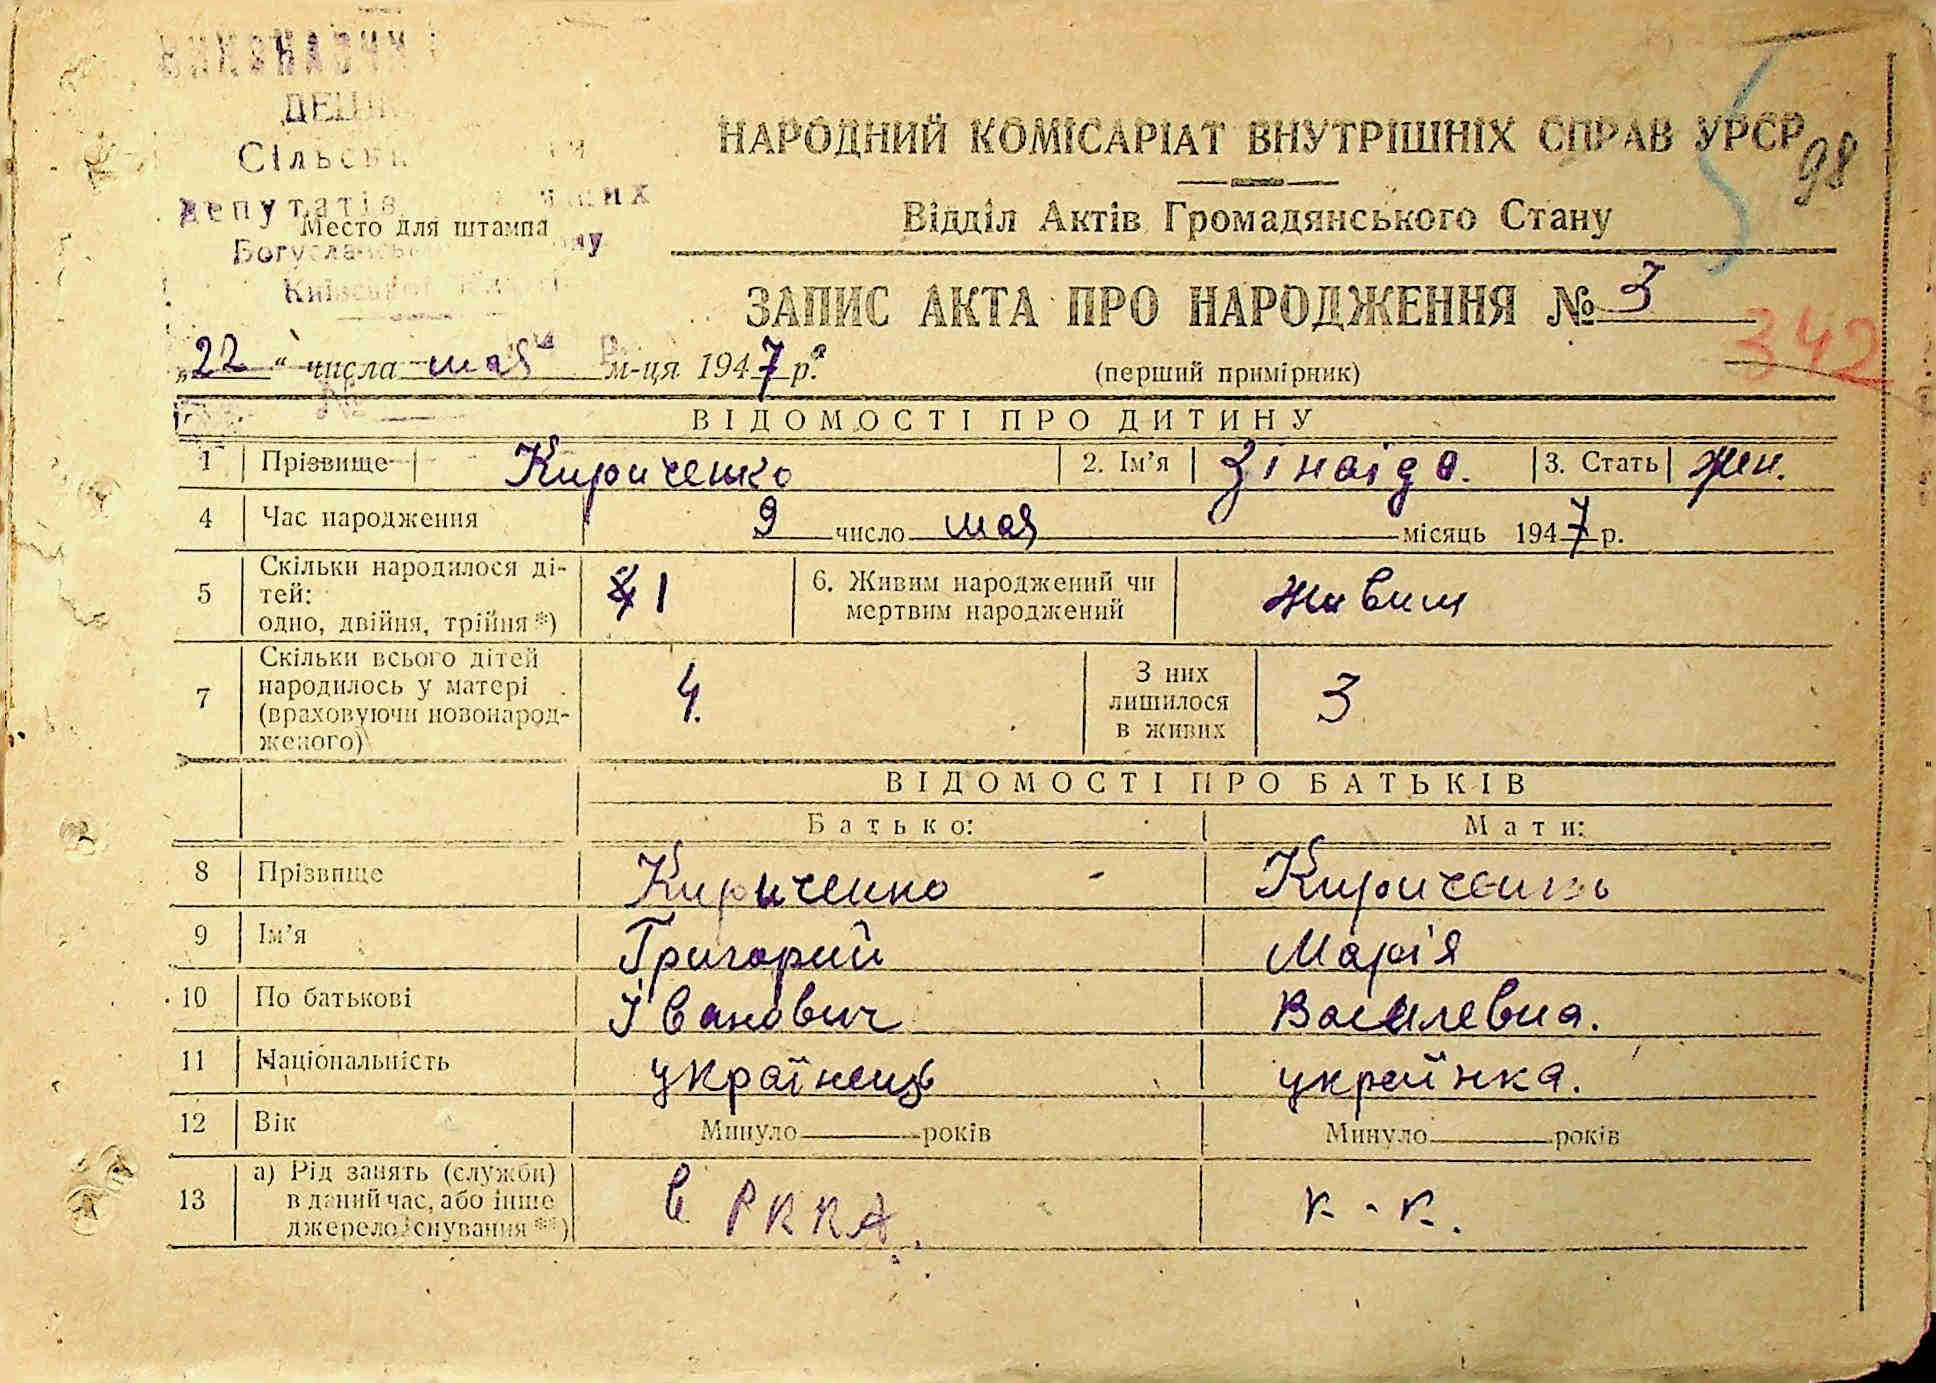 Сільсь
депутатів
Место для штампа
Богуславсь
НАРОДНИЙ КОМІСАРІАТ ВНУТРІШНІХ СПРАВ УРСР
98
Відділ Актів Громадянського Стану
ЗАПИС АКТА ПРО НАРОДЖЕННЯ № 3
342
„22“ числа мая м-ця 1947 р.
(перший примірник)
ВІДОМОСТІ ПРО ДИТИНУ
1 Прізвище Кириченко 2. Ім'я Зінаіда. 3. Стать жен.
4 Час народження 9 число мая місяць 1947 р.
5 Скільки народилося ді-
тей:
одно, двійня, трійня*) 1
6. Живим народжений чи
мертвим народжений живим
7 Скільки всього дітей
народилось у матері
(враховуючи новонарод-
женого) 4.
З них
лишилося
в живих 3
ВІДОМОСТІ ПРО БАТЬКІВ
Батько: Мати:
8 Прізвище Кириченко Кириченко
9 Ім'я Григорий Марія
10 По батькові Іванович Василевна.
11 Національність українець українка.
12 Вік Минуло років Минуло років
13 а) Рід занять (служби)
в даний час, або інше
джерело існування**) в РККА. к-к.